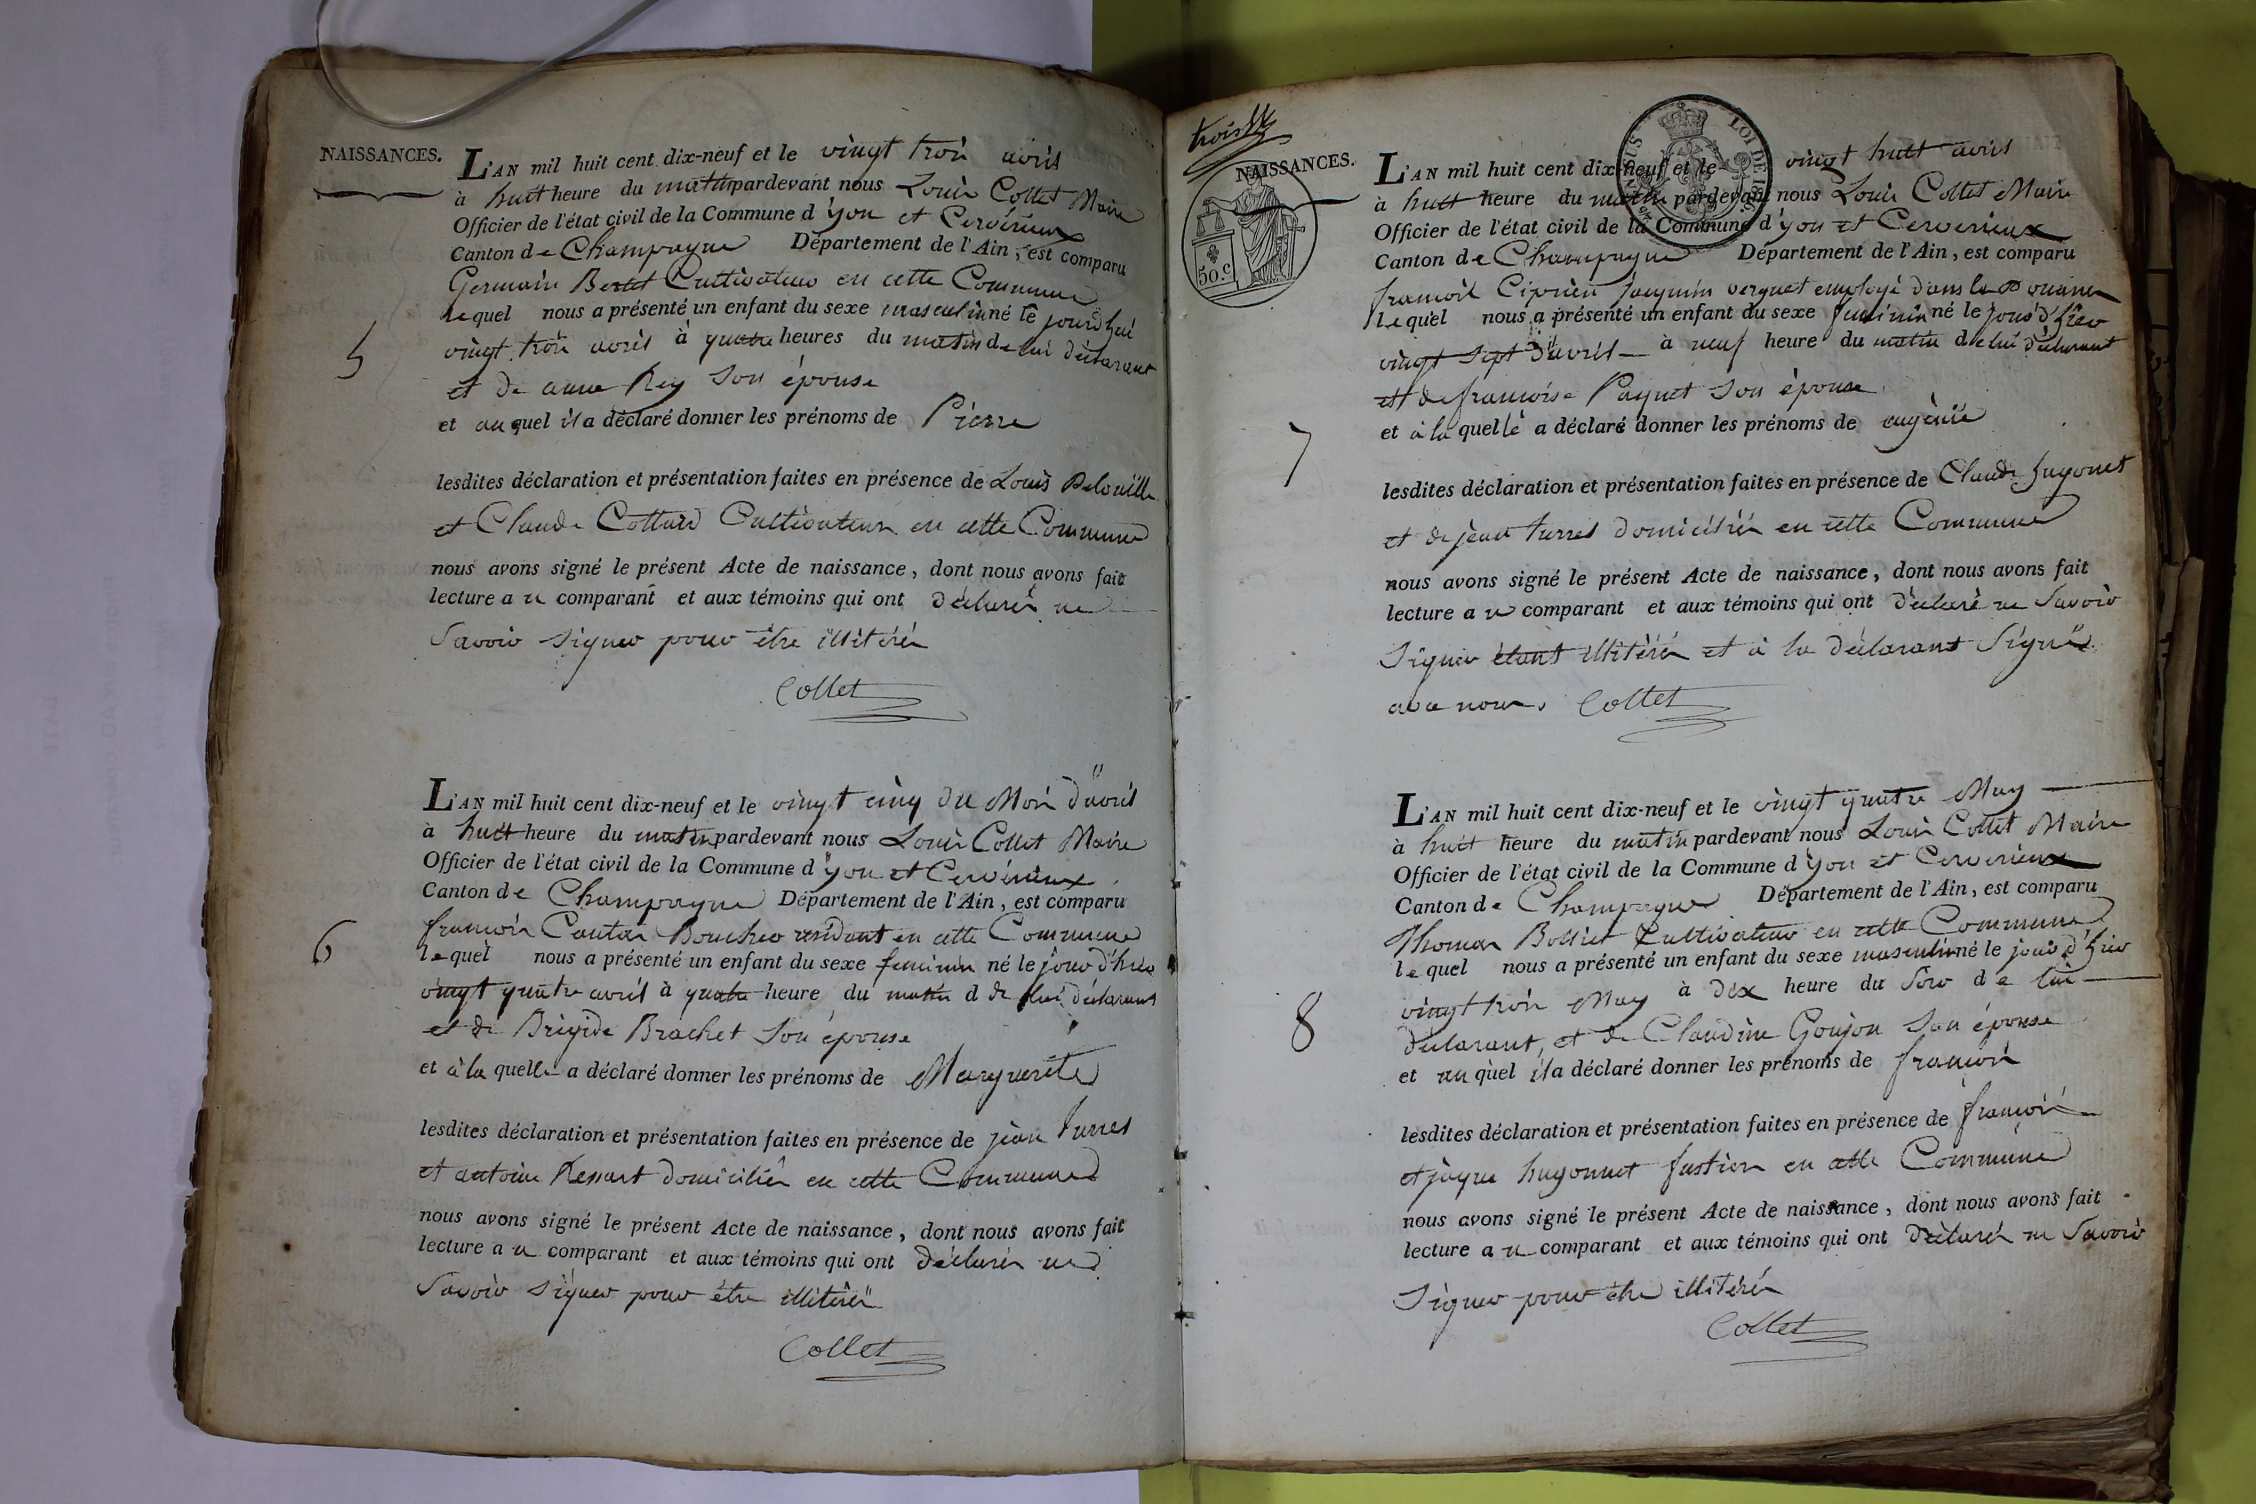 NAISSANCES.
L'AN mil huit cent dix-neuf et le vingt troi avril
à huit heure du matin pardevant nous Louis Collet Maire
Officier de l'état civil de la Commune d'yon et Cervérieux
Canton de Champagne Département de l'Ain, est comparu
Germain Bertet Cultivateur en cette Commune
lequel nous a présenté un enfant du sexe masculin né le jourdhui
vingt troi avril à quatre heures du matin de lui déclarant
et de anne Rey son épouse
et auquel il a déclaré donner les prénoms de Pierre
5
lesdites déclaration et présentation faites en présence de Louis
et Claude Cottard Cultivateurs en cette Commune
nous avons signé le présent Acte de naissance, dont nous avons fait
lecture au comparant et aux témoins qui ont déclarés ne
savoir signer pour être illitérés
Collet
L'AN mil huit cent dix-neuf et le vingt cinq du Moi d'avril
à huit heure du matin pardevant nous Louis Collet Maire
Officier de l'état civil de la Commune d'yon et Cervérieux
Canton de Champagne Département de l'Ain, est comparu
françois Cantar Boucher résidant en cette Commune
6
lequel nous a présenté un enfant du sexe feminin né le jour d'hier
vingt quatre avril à quatre heure du matin d de lui déclarant
et de Brigide Brachet son épouse
et à la quelle a déclaré donner les prénoms de Marguerite
lesdites déclaration et présentation faites en présence de jean turrel
et antoine domiciliés en cette Commune
nous avons signé le présent Acte de naissance, dont nous avons fait
lecture au comparant et aux témoins qui ont déclarés ne
savoir signer pour être illitérés
Collet
trois
NAISSANCES.
50.c
LOI DE 1816
L'AN mil huit cent dix-neuf et le vingt huit avril
à huit heure du matin pardevant nous Louis Collet Maire
Officier de l'état civil de la Commune d'yon et Cerverieux
Canton de Champagne Département de l'Ain, est comparu
francois Ciprien jacquin verguet employé dans les Douanes
lequel nous a présenté un enfant du sexe feminin né le jour d'hier
vingt sept d'avril à neuf heure du matin de lui déclarant
et de francoise Paquet son épouse
et à la quelle a déclaré donner les prénoms de eugènie
7
lesdites déclaration et présentation faites en présence de Claude hugonet
et de jean turrel domiciliés en cette Commune
nous avons signé le présent Acte de naissance, dont nous avons fait
lecture au comparant et aux témoins qui ont déclaré ne savoir
signer étant illitérés et à le déclarant signé
avec nous. Collet
L'AN mil huit cent dix-neuf et le vingt quatre May
à huit heure du matin pardevant nous Louis Collet Maire
Officier de l'état civil de la Commune d'yon et Cerverieux
Canton de Champagne Département de l'Ain, est comparu
Thomas Bolliet Cultivateur en cette Commune
lequel nous a présenté un enfant du sexe masculin né le jour d'hier
vingt troi May à dix heure du soir de lui
8
déclarant, et de Claudine Goujon son épouse
et au quel il a déclaré donner les prénoms de francois
lesdites déclaration et présentation faites en présence de francois
et jaque hugonnet en cette Commune
nous avons signé le présent Acte de naissance, dont nous avons fait
lecture au comparant et aux témoins qui ont déclarés ne savoir
signer pour être illitérés
Collet